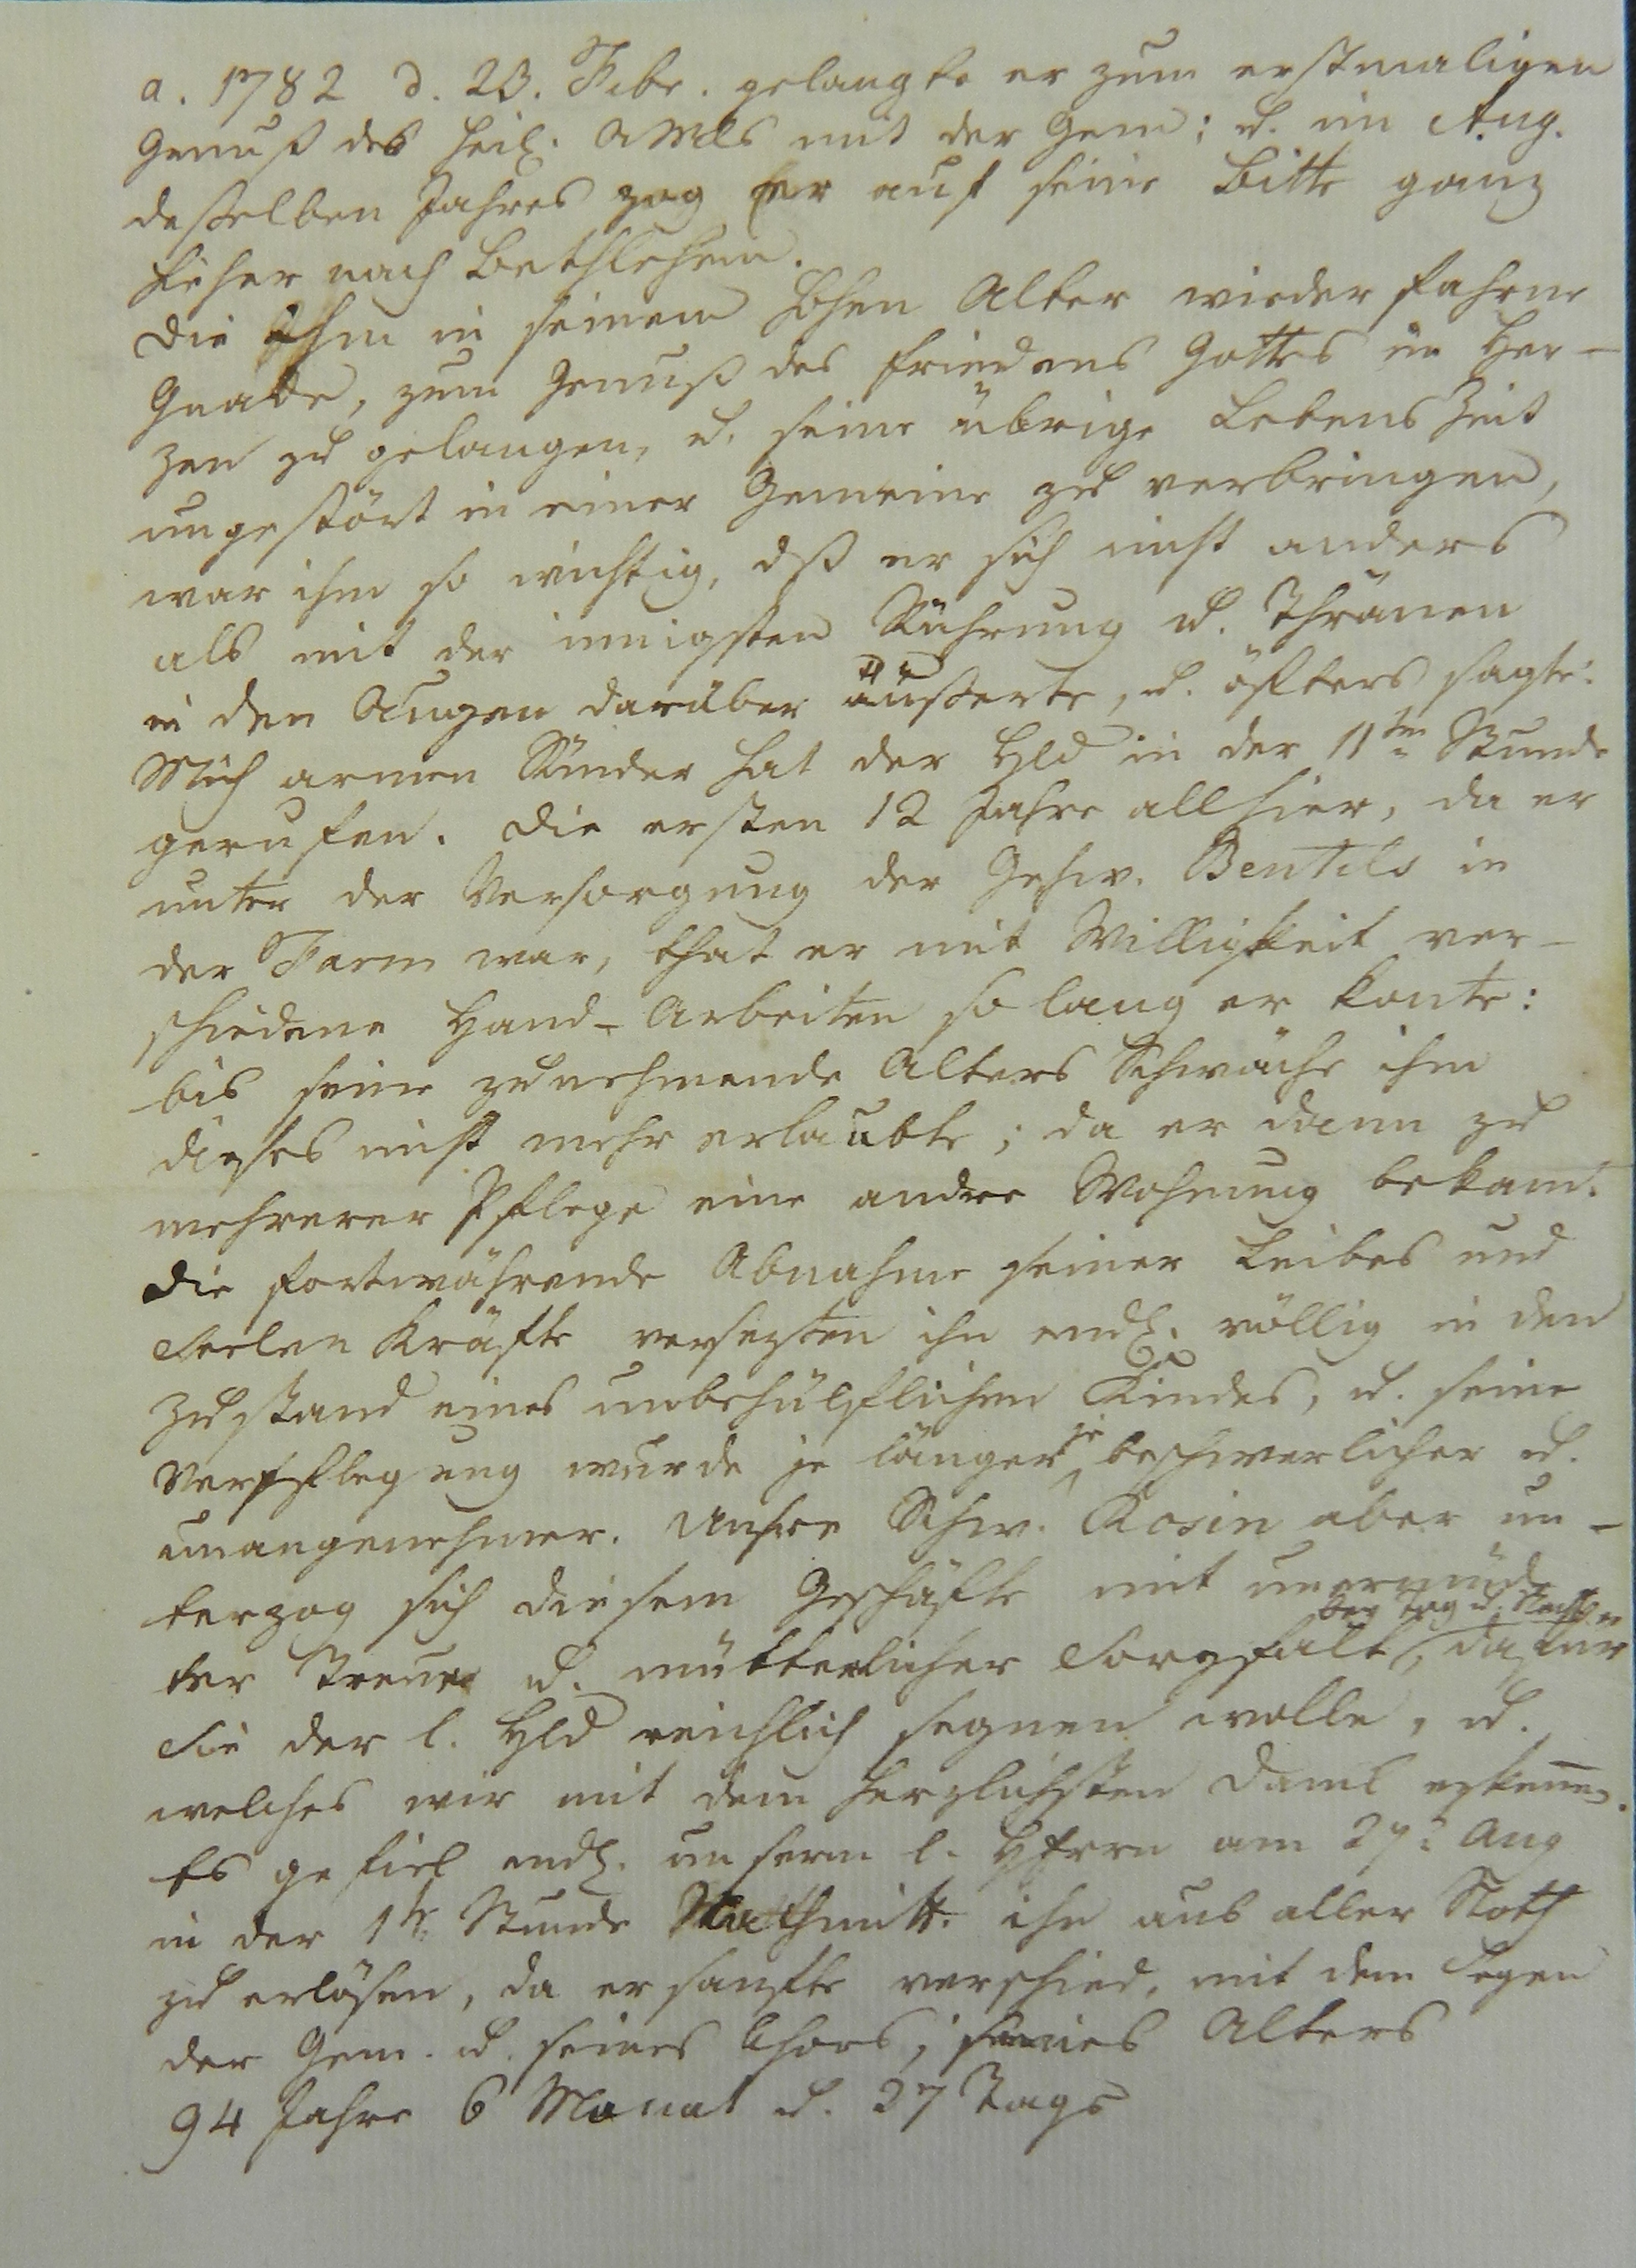 a. 1782 d. 23. Febr. gelangte er zum erstmaligen
Genuß des heil. AMls mit der Gem; u. im Aug.
deßelben Jahres zog er auf seine Bitte ganz
hieher nach Bethlehem.
Die Ihm in seinem hohen Alter wiederfahrne
Gnade, zum Genuß des Friedens Gottes im Her-
zen zu gelangen, u. seine übrige LebensZeit
ungestört in einer Gemeine zu verbringen,
war ihm so wichtig, dß er sich nicht anders
als mit der innigsten Rührung u. Thränen
in den Augen darüber äußerte, u. öfters sagte:
Mich armen Sünder hat der Hld in der 11ten Stunde
gerufen. Die ersten 12 Jahre allhier, da er
unter der Versorgung der Geschw. Bentels in
der Farm war, that er mit Willigkeit ver-
schiedene Hand-Arbeiten so lang er konte:
bis seine zunehmende Alters Schwäche ihm
dieses nicht mehr erlaubte; da er dann zu
mehrerer Pflege eine andre Wohnung bekam.
Die fortwährende Abnahme seiner Leibes und
Seelen Kräfte versezten ihn endl. völlig in den
Zustand eines unbehülflichen Kindes, u. seine
Verpflegung wurde je länger je beschwerlicher u.
unangenehmer. Unsre Schw. Rosin aber un-
terzog sich diesem Geschäfte mit unermüde
ter Treue u. mütterlicher Sorgfalt bey Tag u. Nacht, dafür
Sie der l. Hld reichlich segnen wolle, u.
welches wir mit dem herzlichsten Dank erkennen.
Es gefiel endl. unserm l. Herrn am 27. Aug
in der 1te Stunde Nachmitt. ihn aus aller Noth
zu erlösen, da er sanfte verschied, mit dem Segen
der Gem. u. seines Chors; seines Alters
94 Jahre 6 Monat u. 27 Tage